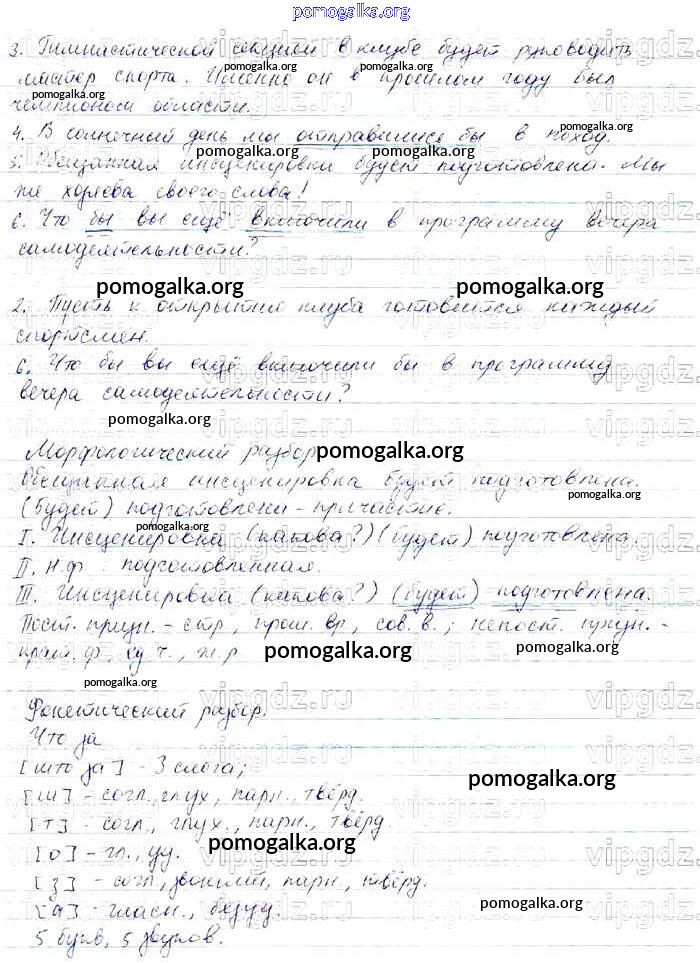 pomogalka.org
3. Гимнастической секцией в клубе будет руководить
мастер спорта. Именно он в прошлом году был
чемпионом области.
4. В солнечный день мы отправились бы в поход.
5. Обещанная инсценировка будет подготовлена. Мы
же хозяева своего слова!
6. Что бы вы ещё включили в программу вечера
самодеятельности?
pomogalka.org pomogalka.org
2. Пусть к открытию клуба готовится каждый
спортсмен.
6. Что бы вы ещё включили бы в программу
вечера самодеятельности?
pomogalka.org
Морфологический разбор
Обещанная инсценировка будет подготовлена.
(Будет) подготовлена - причастие.
I. Инсценировка (какова?) (будет) подготовлена.
II. Н.ф. подготовленная.
III. Инсценировка (какова?) (будет) подготовлена.
Пост. призн. - стр., прош. вр., сов. в.; непост. призн. -
крат. ф., ед. ч., ж. р.
pomogalka.org
Фонетический разбор.
Что за
[што за] - 3 слога;
[ш] - согл., глух., парн., твёрд.
[т] - согл., глух., парн., твёрд.
[о] - гл., уд.
[з] - согл., звонкий, парн., твёрд.
[а] - гласн., безуд.
5 букв, 5 звуков.